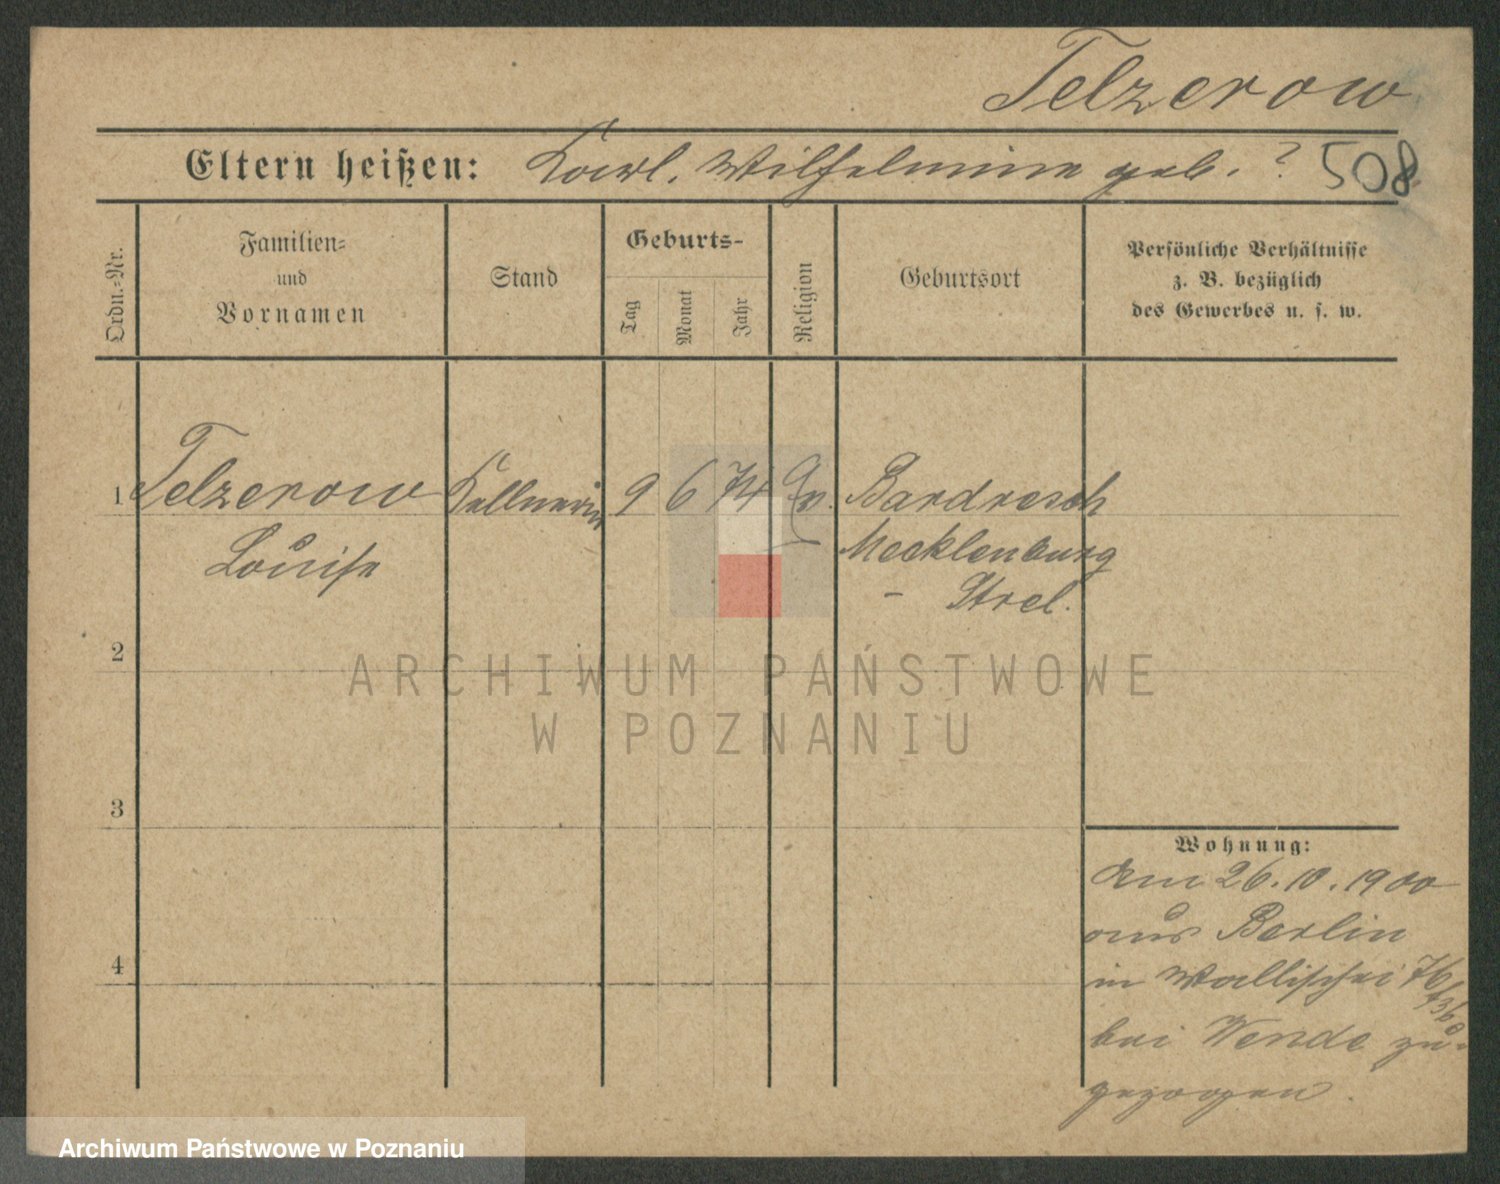 Telzerow
Eltern heißen: Karl. Wilhelmine geb. ? 508
Ordn.-Nr.
Familien-
und
Vornamen
Stand
Geburts-
Tag
Monat
Jahr
Religion
Geburtsort
Persönliche Verhältnisse
z. B. bezüglich
des Gewerbes u. s. w.
1 Telzerow Kellnerin 9 6 74 Ev. Bardresch
Louise Mecklenburg
- Strel.
2
ARCHIWUM PAŃSTWOWE
W POZNANIU
3
Wohnung:
Am 26.10.1900
aus Berlin
4
in Wallischei 76
bei Wende zu-
gezogen.
Archiwum Państwowe w Poznaniu